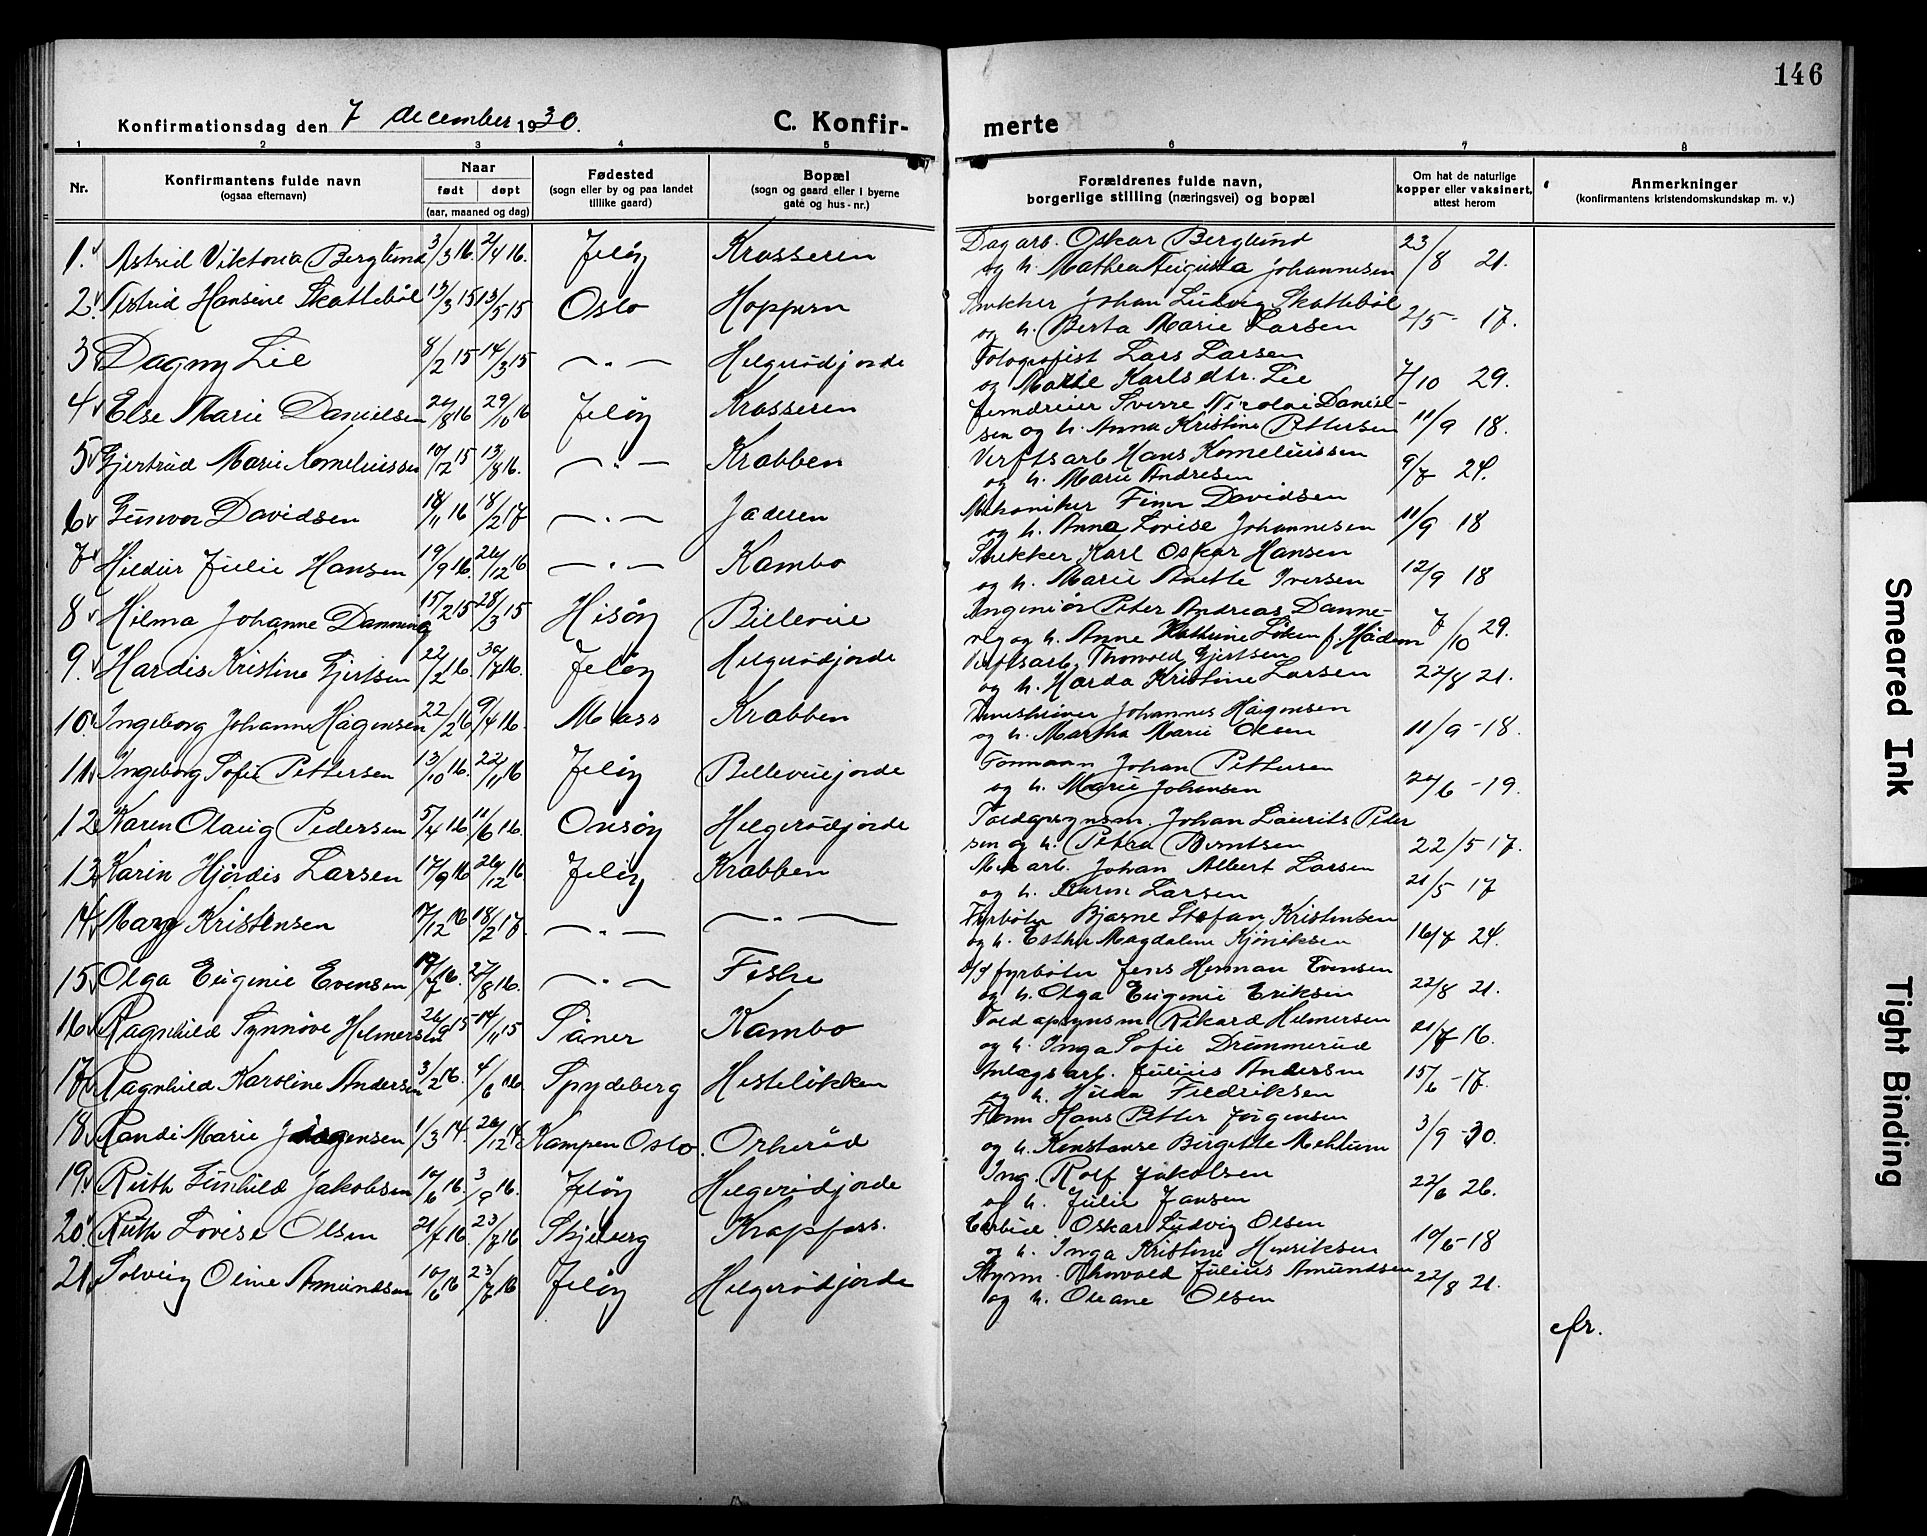 146
Konfirmationsdag den 7 december 1930.
C. Konfir-
merte
1 2 3 4 5 6 7 8
Nr.
Konfirmantens fulde navn
(ogsaa efternavn)
Naar
født døpt
(aar, maaned og dag)
Fødested
(sogn eller by og paa landet
tillike gaard)
Bopæl
(sogn og gaard eller i byerne
gate og hus-nr.)
Forældrenes fulde navn,
borgerlige stilling (næringsvei) og bopæl
Om hat de naturlige
kopper eller vaksinert,
attest herom
Anmerkninger
(konfirmantens kristendomskundskap m. v.)
1. Astrid Viktoria Berglund 3/3 16. 2/4 16. Jeløy Krosseren Dagarb. Oskar Berglund 23/8 21.
og h. Mathea Augusta Johannesen
2. Astrid Hansine Skattebøl 13/3 15 13/5 15 Oslo Hoppern Snekker Johan Ludvig Skattebøl
og h. Berta Marie Larsen 2/5 - 17.
3 Dagny Lie 8/2 15 14/3 15 — " — Helgerødjorde Fotografist Lars Larsen
og Marie Karlsdtr. Lie 7/10 29.
4 Else Marie Danielsen 26/8 16 29/10 16 Jeløy Krosseren Jerndreier Sverre Nicolai Daniel-
sen og h. Anna Kristine Pettersen 11/9 18.
5 Gjertrud Marie Korneliussen 10/12 15 13/8 16. — " — Krabben Verftsarb Hans Korneliussen
og h. Marie Andresen 9/7 24.
6 Gunvor Davidsen 18/11 16 18/2 17 — " — Jaderen Mekaniker Finn Davidsen
og h. Anna Lovise Johannesen 11/9 18
7 Hildur Julie Hansen 19/9 16. 26/12 16 — " — Kambo Snekker Karl Oskar Hansen
og h. Marie Anette Iversen 12/9 18
8 Hilma Johanne Dannevig 15/2 15 28/3 15 Hisøy Bellevue Ingeniør Peter Andreas Danne-
vig og h. Anne Kathrine Løken f. Hådem 7/10 29.
9. Hardis Kristine Gjertsen 22/2 16. 30/7 16. Jeløy Helgerødjorde Verftsarb. Thorvald Gjertsen
og h. Harda Kristine Larsen 22/8 21.
10 Ingeborg Johanne Hagensen 22/2 16 9/4 16. Moss Krabben Johannes Hågensen
og h. Martha Marie Olsen 11/9 - 18.
11. Ingeborg Sofie Pettersen 13/10 16. 22/11 16 Jeløy Bellevuejorde Formann Johan Pettersen
og h. Marie Johansen 20/6 - 19.
12 Karen Olaug Pedersen 5/4 16 11/6 16. Onsøy Helgerødjorde Toldopsynsm. Johan Laurits Peder
sen og h. Petra Berntsen 22/5 17.
13 Karin Hjørdis Larsen 17/9 16 26/12 16. Jeløy Krabben arb. Johan Albert Larsen
og h. Karen Larsen 21/5 17
14 Mary Kristensen 17/12 16 18/2 17. — " — — " — Fyrbøter Bjarne Stefan Kristensen
og h. Esther Magdalene Kjøniksen 16/7 24.
15 Olga Eugenie Evensen 17/7 16. 27/8 16. — " — Feste D/S fyrbøter Jens Herman Evensen
og h. Olga Eugenie Eriksen 22/8 21.
16 Ragnhild Synnøve Helmersen 26/9 15 14/11 15 Såner Kambo Toldopsynsm Rikard Helmersen
og h. Inga Sofie Drømmerud 21/7 16.
17 Ragnhild Karoline Andersen 3/2 16. 4/6 16 Spydeberg Hesteløkken Anlægsarb. Julius Andersen
og h. Hilda Fredriksen 15/6 - 17.
18 Randi Marie Jørgensen 1/3 14. 26/12 14. Kampen Oslo. Orkerød Form Hans Petter Jørgensen
og h. Konstanse Birgitte Mehlum 3/9 - 30.
19. Ruth Gunhild Jakobsen 10/6 16. 3/9 16. Jeløy Helgerødjorde Ing. Rolf Jakobsen
og h. Julie Jansen 22/6 26.
20. Ruth Lovise Olsen 21/4 16 23/7 16 Skjeberg Krapfoss. Oskar Ludvig Olsen
og h. Inga Kristine Henriksen 10/6 - 18
21. Solveig Oline Amundsen 10/6 16 23/7 16 Jeløy Helgerødjorde Styrm. Thorvald Julius Amundsen
og h. Oleane Olsen 22/8 21.
cfr.
Smeared Ink
Tight Binding